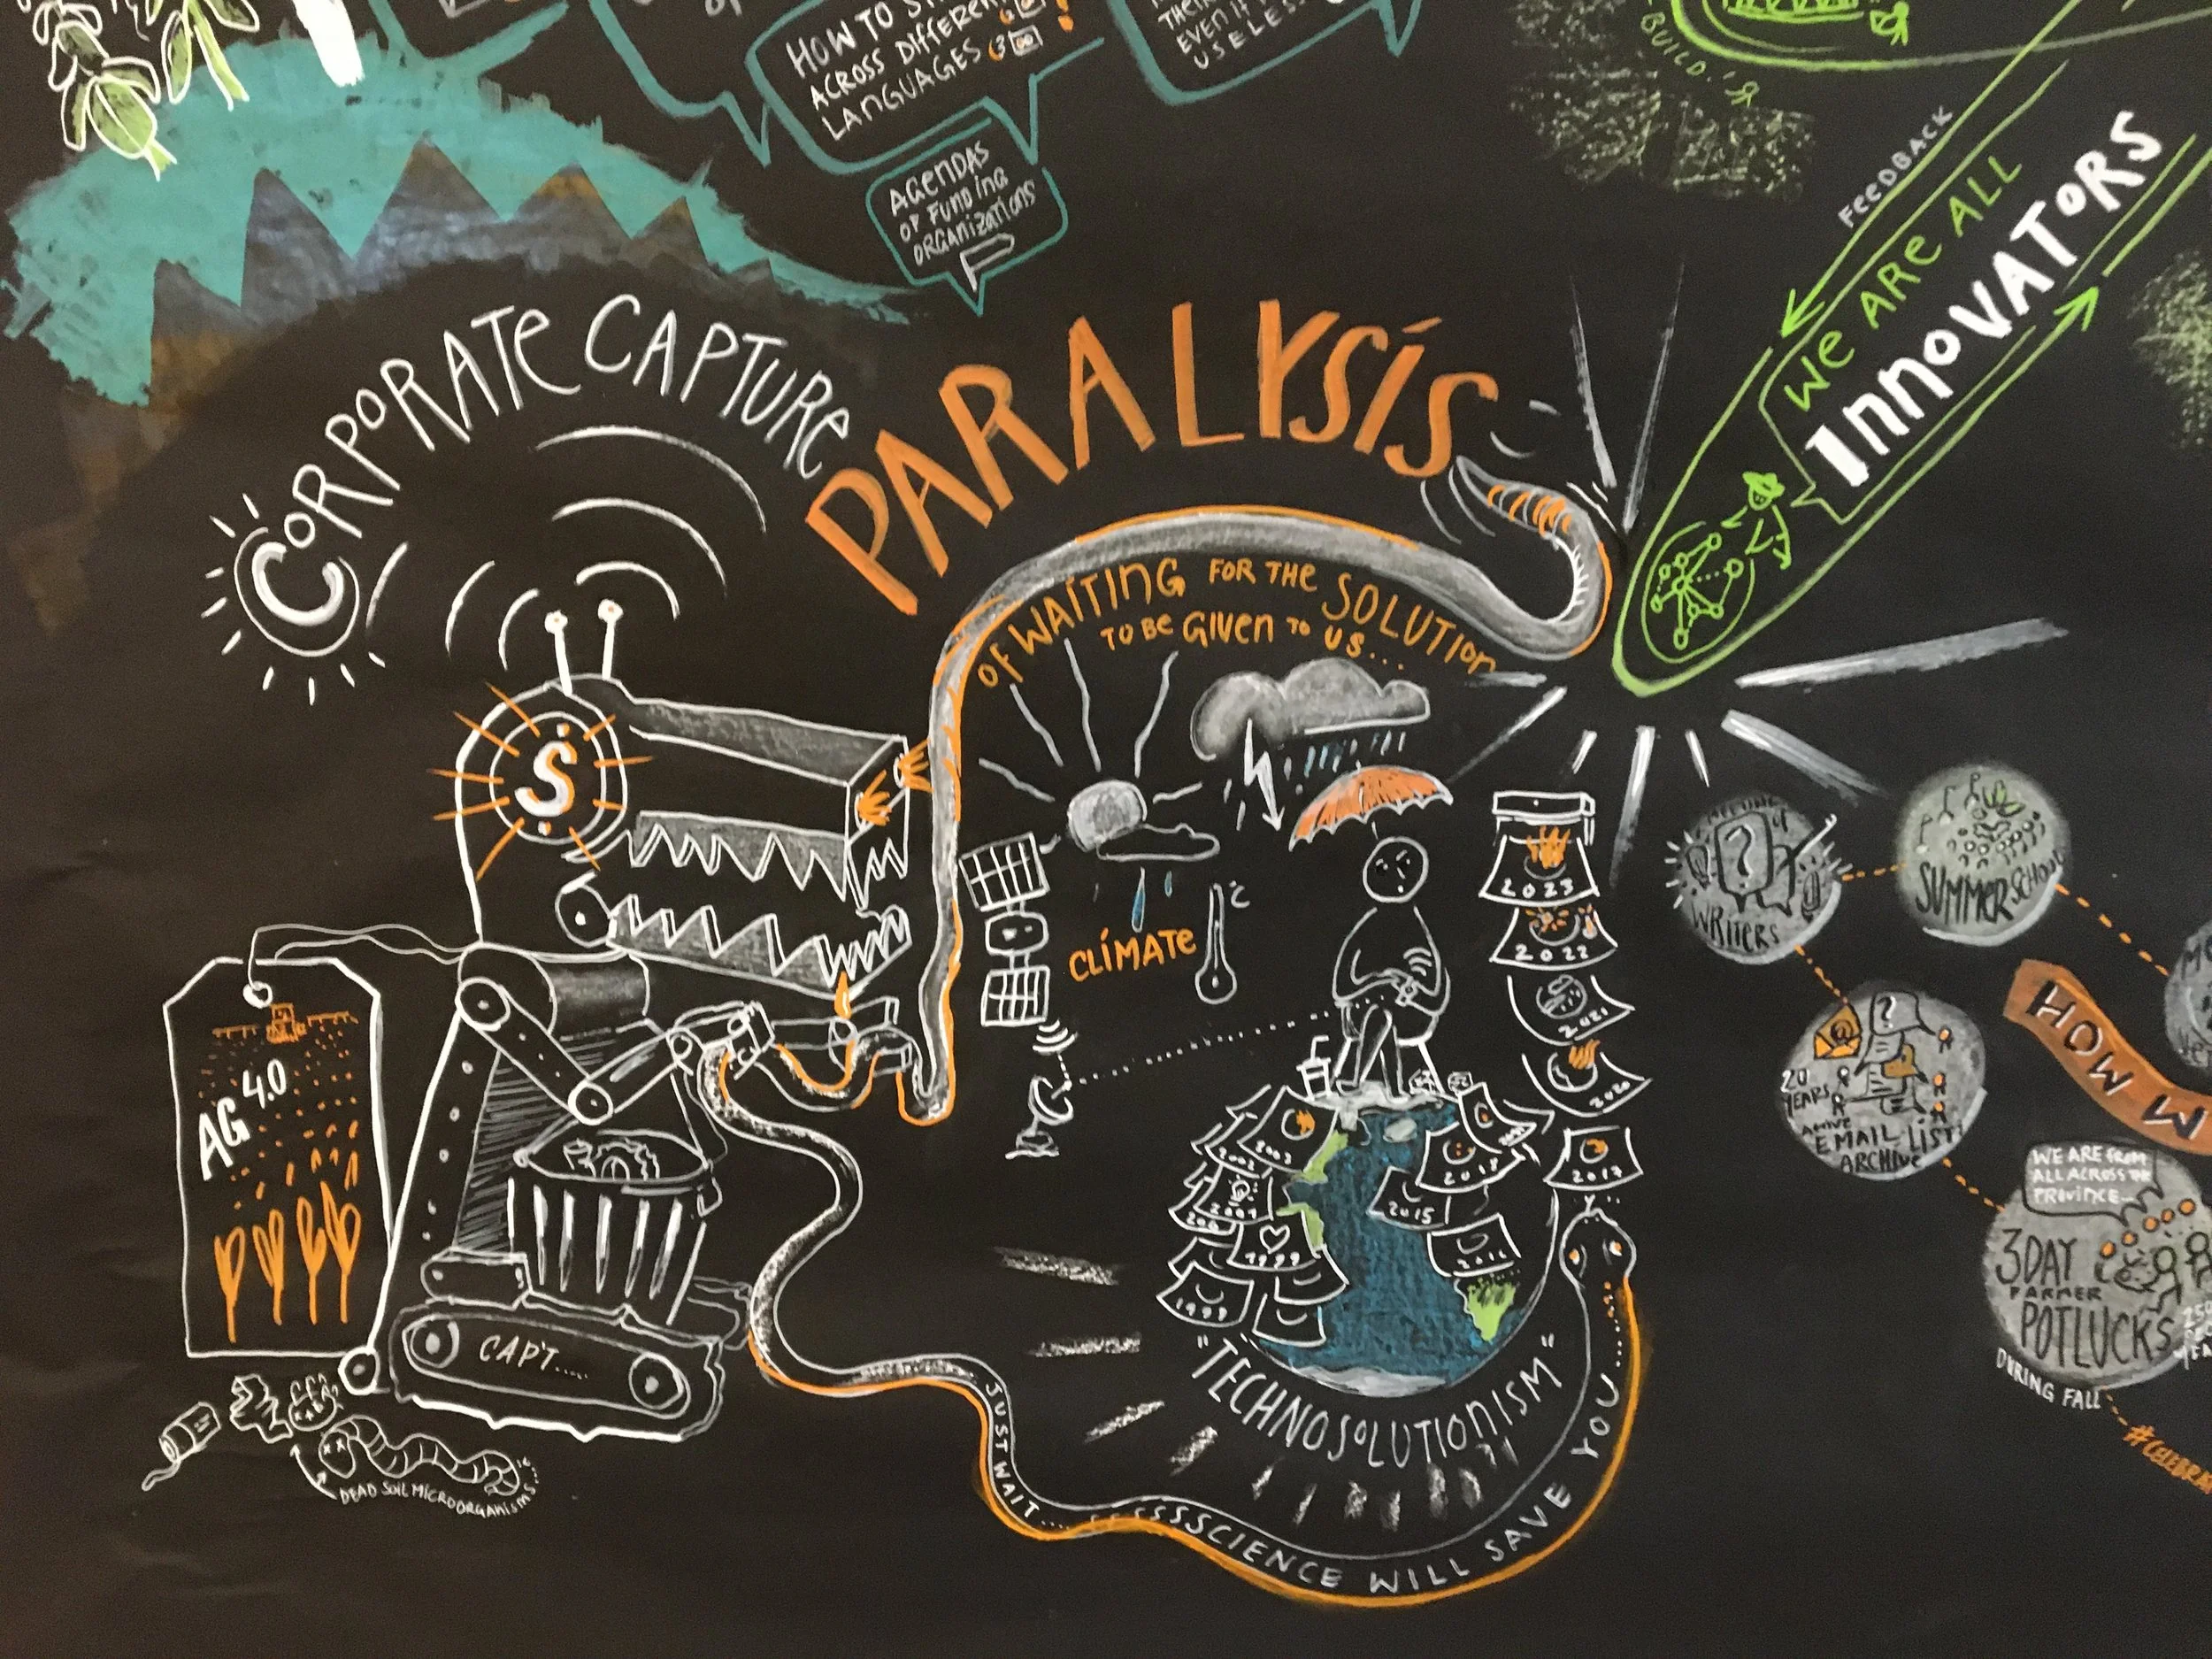 HOW TO
ACROSS DIFFERENT
LANGUAGES
EVEN IF
USELESS
BUILD!
AGENDAS
OF FUNDING
ORGANIZATIONS
FEEDBACK
WE ARE ALL
INNOVATORS
CORPORATE CAPTURE
PARALYSIS
OF WAITING FOR THE SOLUTION
TO BE GIVEN TO US...
S
CLIMATE
°C
AG 4.0
CAPT.....
DEAD SOIL MICROORGANISMS...
2023
2022
2021
2020
2017
2018
2015
2003
2002
2001
1999
"TECHNOSOLUTIONISM"
JUST WAIT.... SSSSSCIENCE WILL SAVE YOU.....
?
WRITERS
SUMMER SCHOOL
?
@
20
YEARS
EMAIL LIST
ARCHIVE
HOW W
WE ARE FROM
ALL ACROSS THE
PROVINCE...
3 DAY
FARMER
POTLUCKS
DURING FALL
#CELEBRA